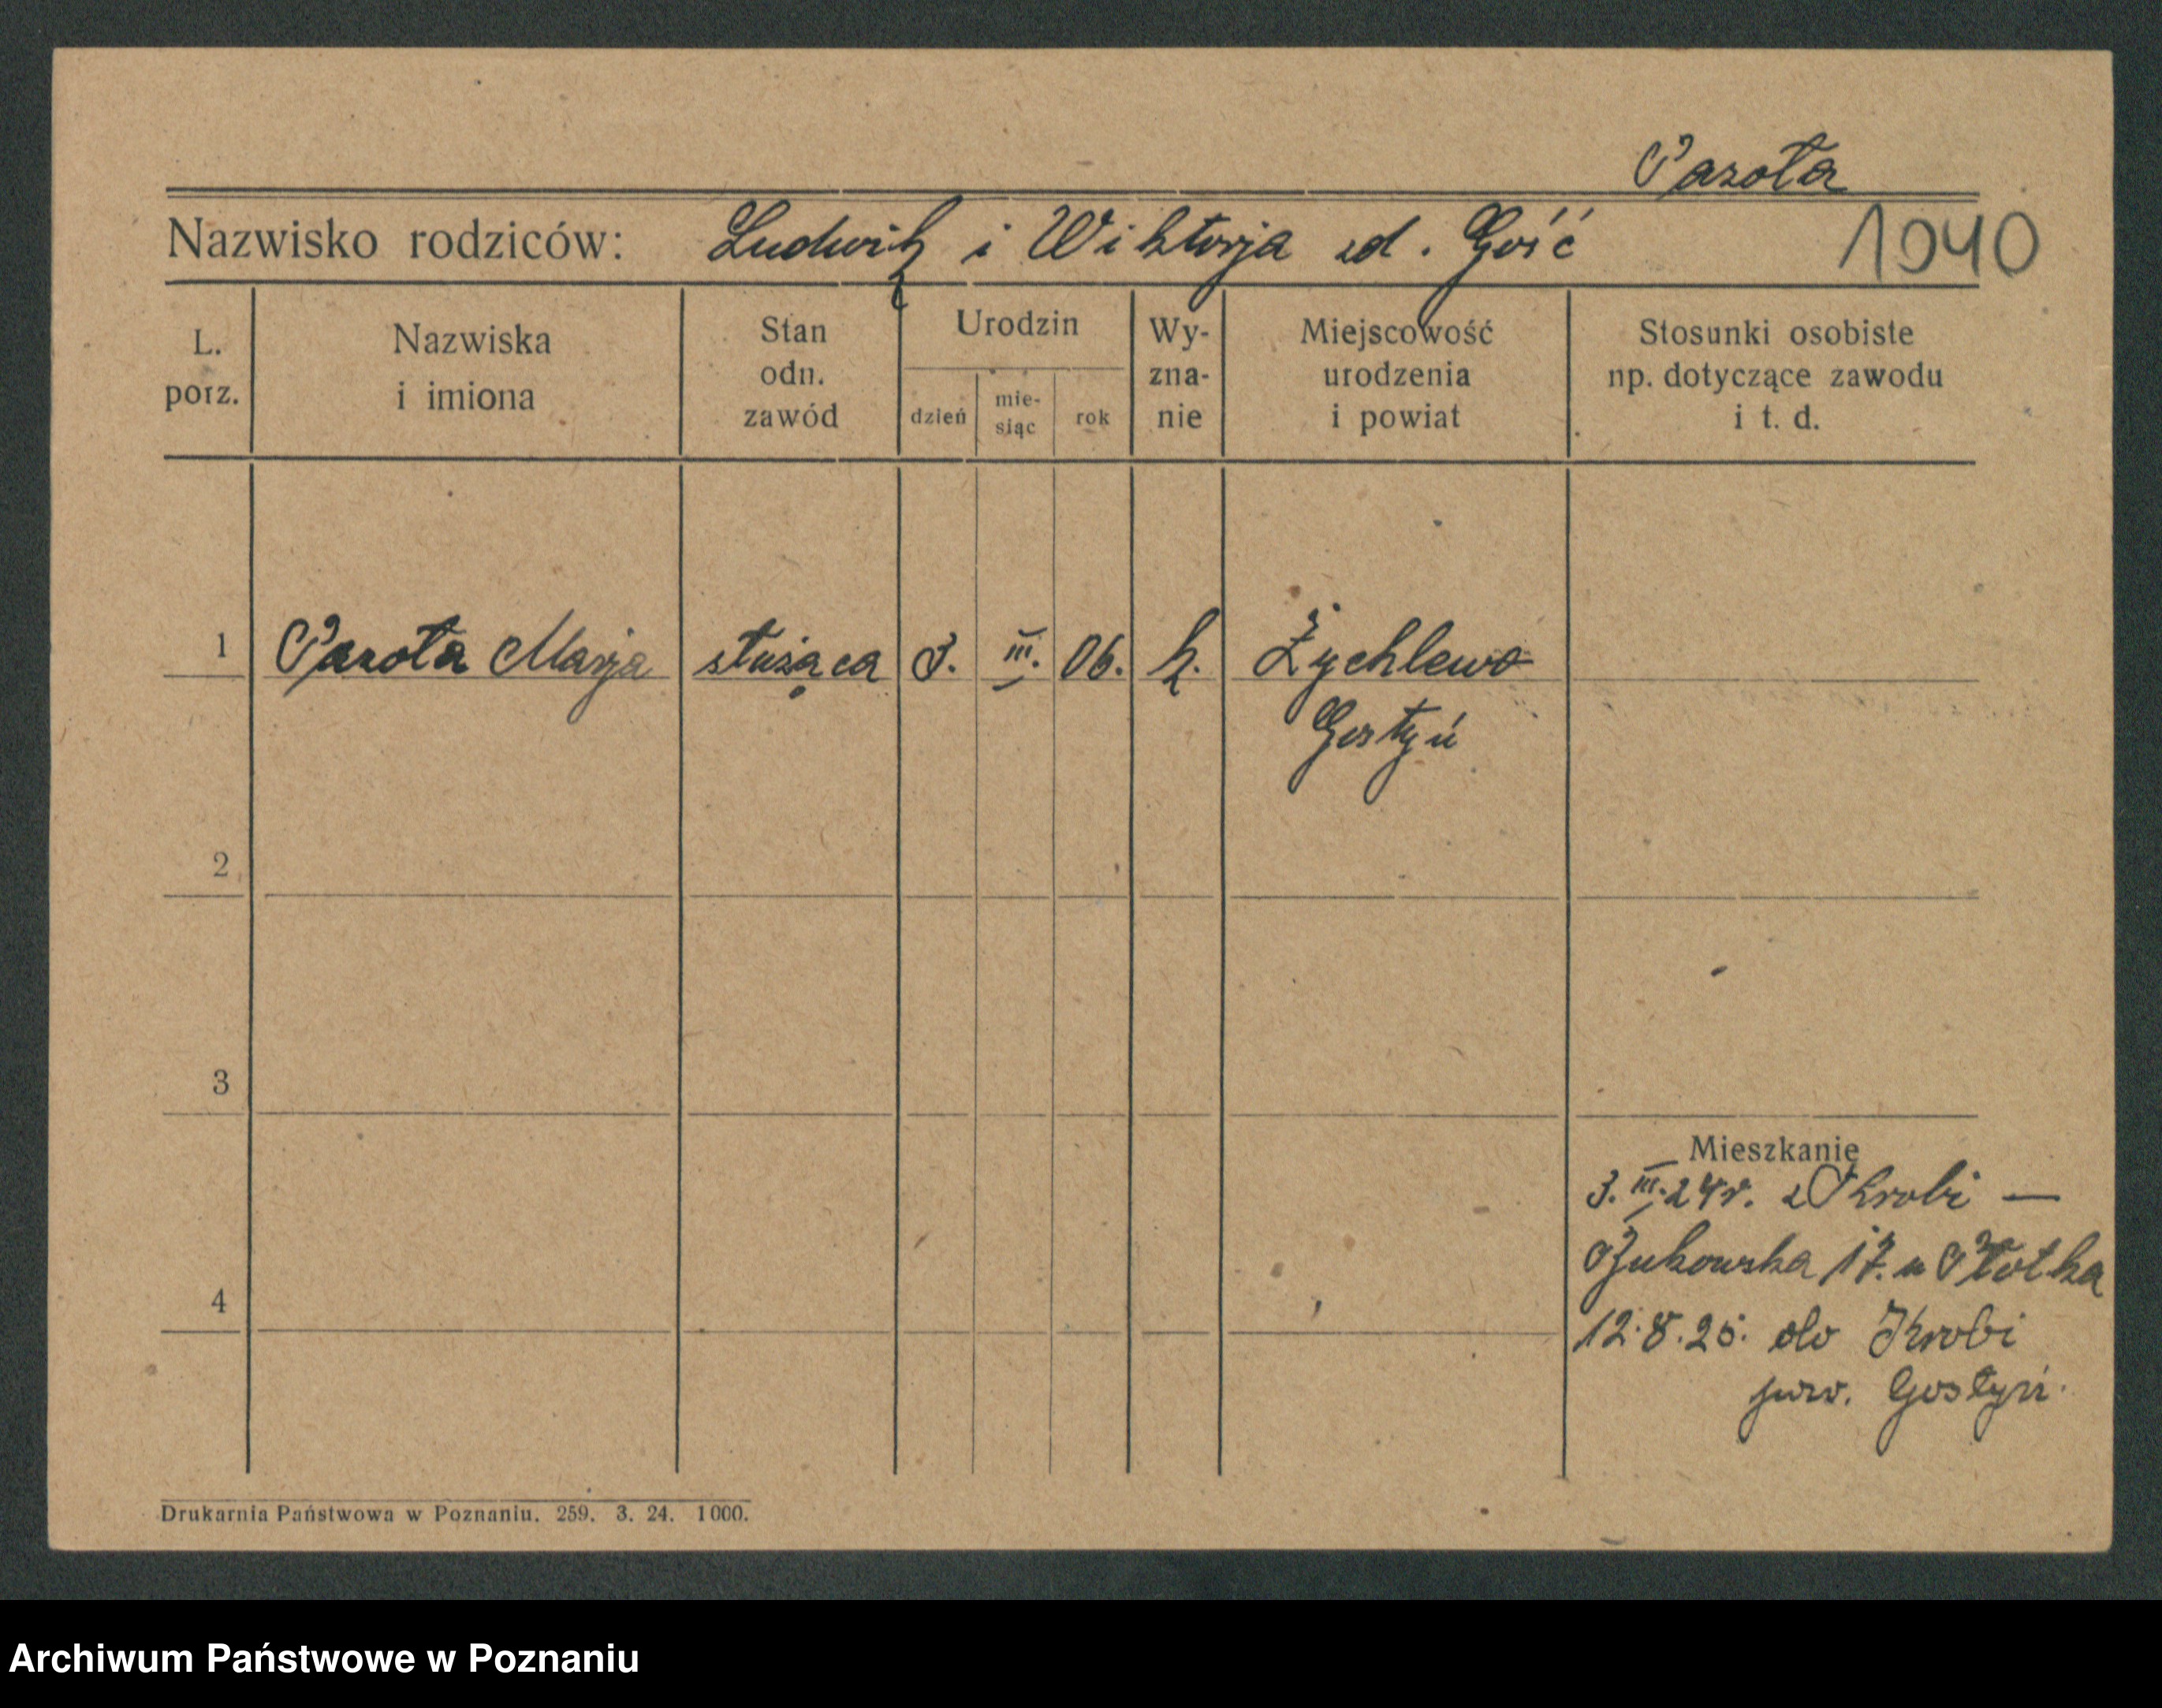 Pazoła
Nazwisko rodziców: Ludwik i Wiktorja zd. Gość 1940
L. porz.
Nazwiska i imiona
Stan odn. zawód
Urodzin
dzień
mie- siąc
rok
Wy- zna- nie
Miejscowość urodzenia i powiat
Stosunki osobiste np. dotyczące zawodu i t. d.
1 Pazoła Marja służąca 3. III. 06. k. Żychlewo
Gostyń
2
3
Mieszkanie
3. III. 24 r. z Krobi —
Bukowska 17. u
4
12.8.25. do Krobi
pow. Gostyń.
Drukarnia Państwowa w Poznaniu. 259. 3. 24. 1000.
Archiwum Państwowe w Poznaniu